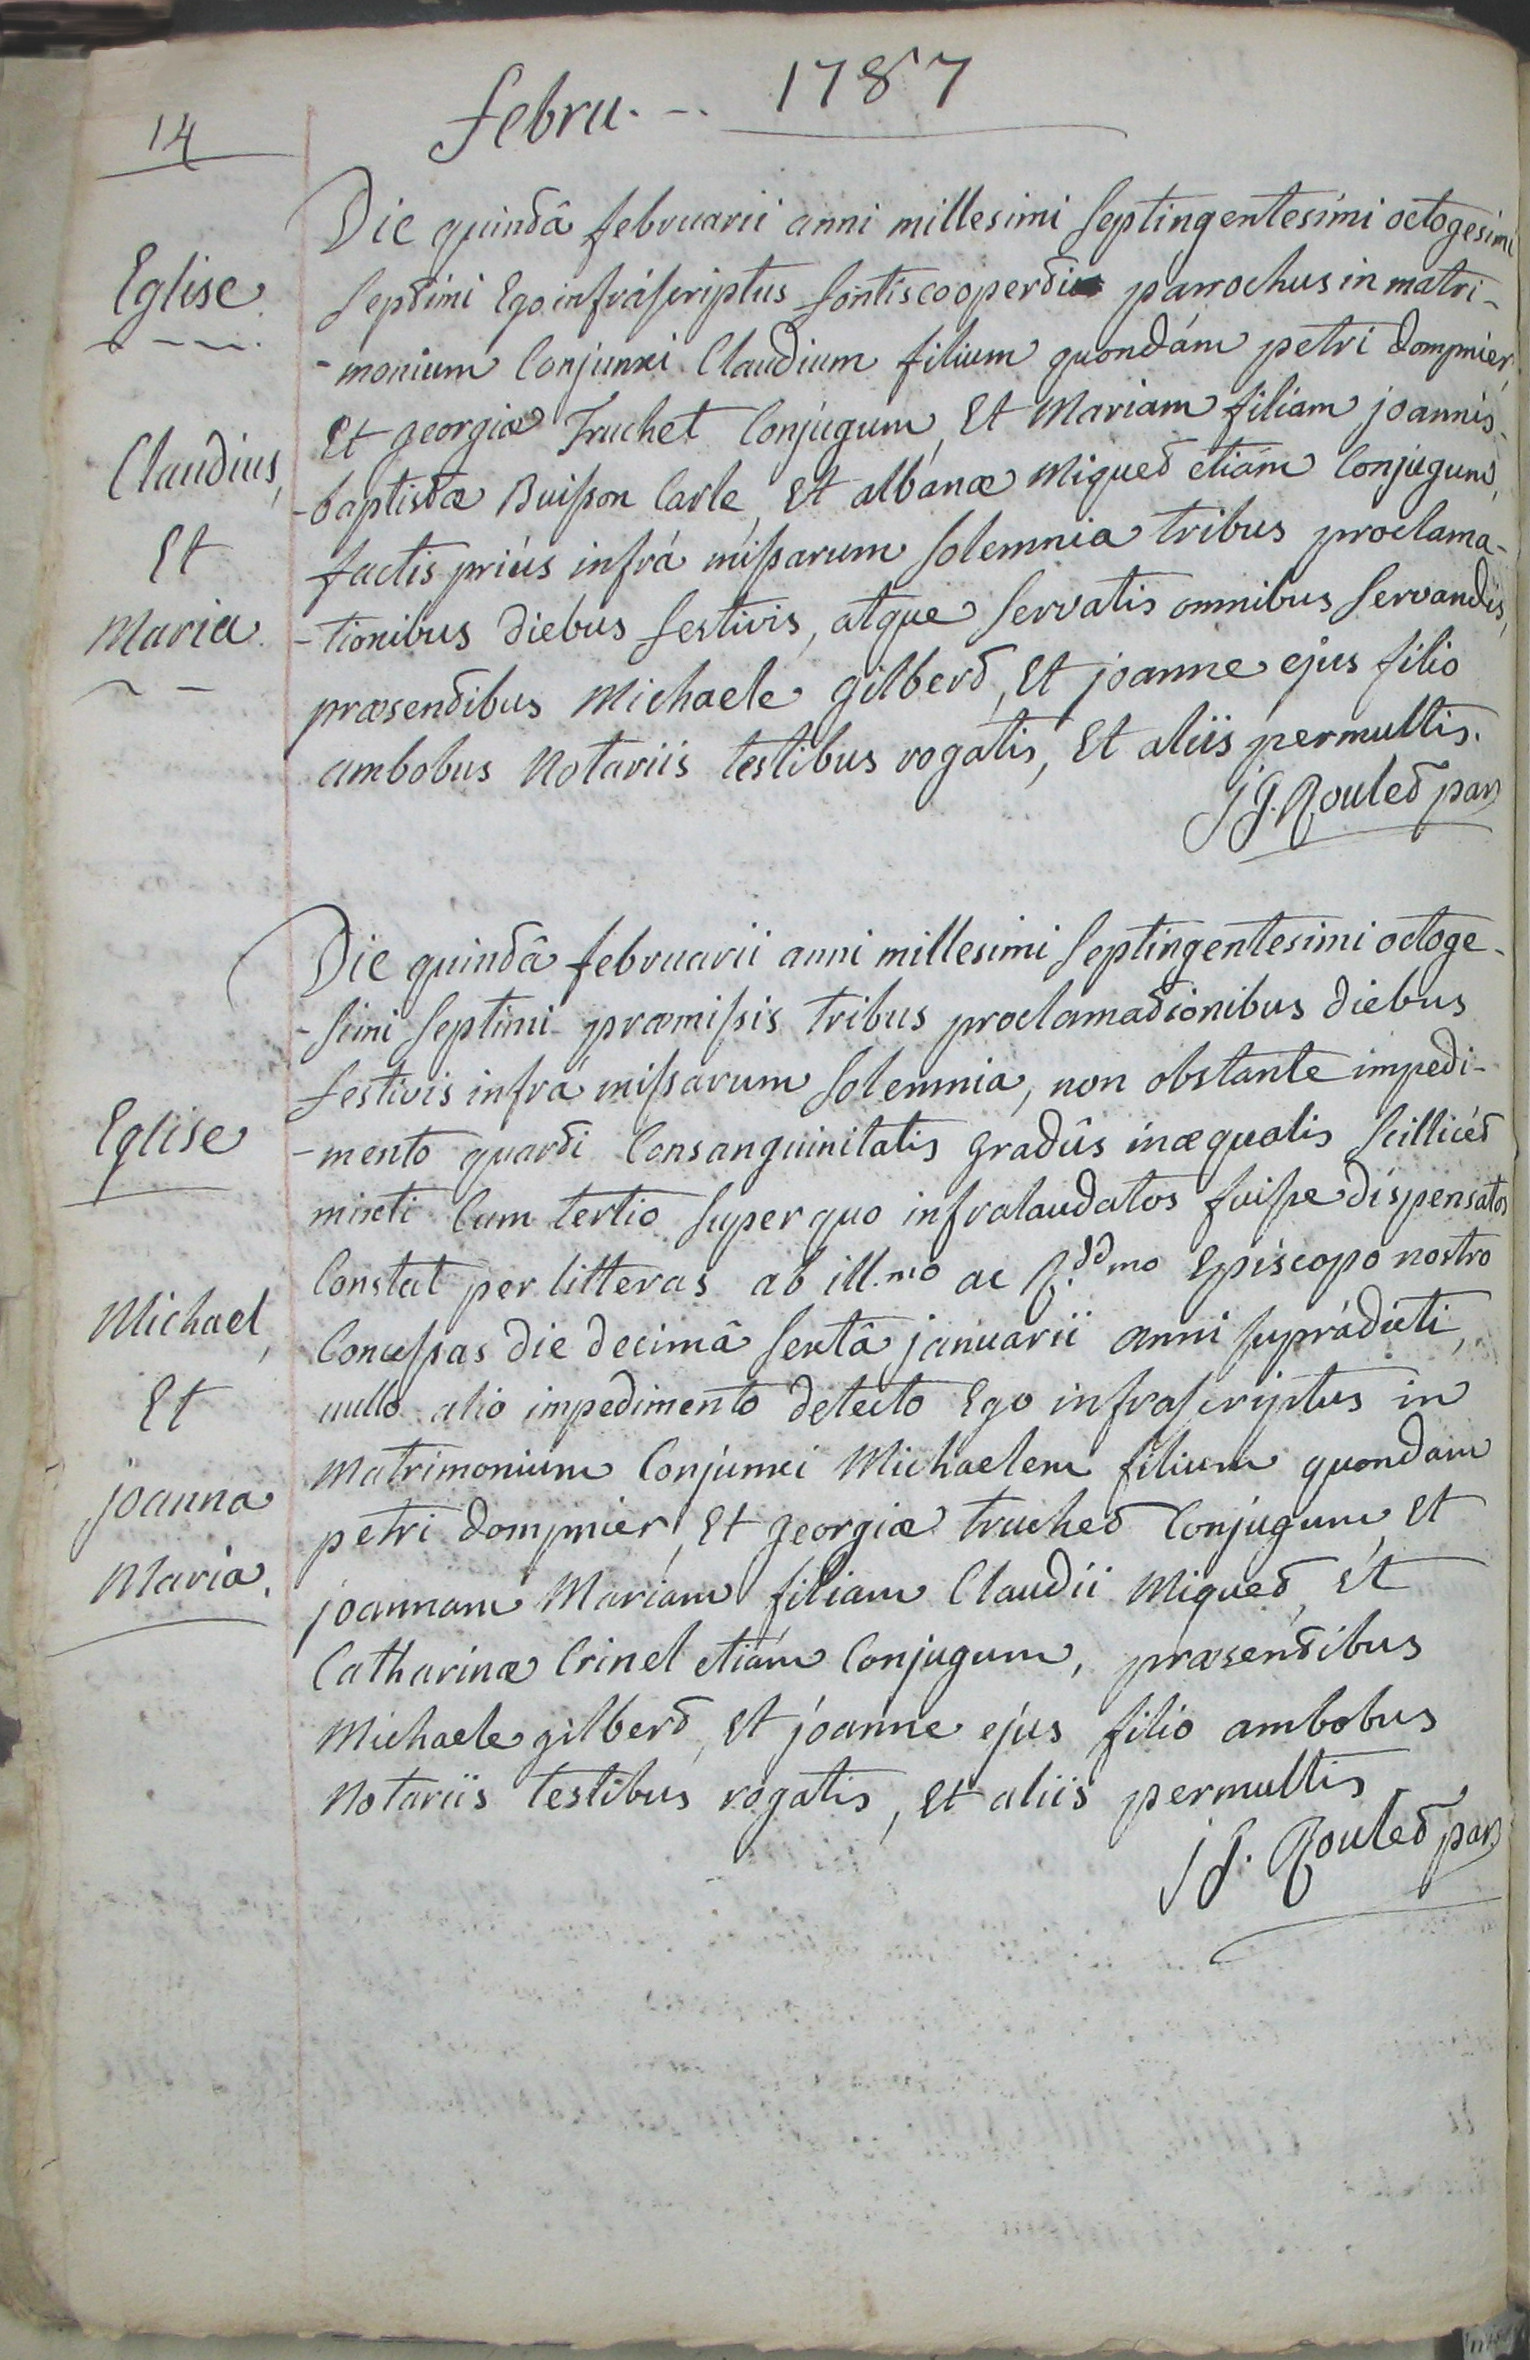 14
febru. -- 1787
Eglise
Claudius,
Et
Maria.
Die quintâ februarii anni millesimi septingentesimi octogesimi
septimi Ego infráscriptus fontiscooperti parrochus in matri-
-monium Conjunxi Claudium filium quondám petri dompnier,
Et georgiæ Truchet Conjugum, Et Mariam filiam joannis-
-baptistæ Buisson Carle, Et albanæ Miquet etiám Conjugum,
factis priús infrá missarum solemnia tribus proclama-
-tionibus diebus festivis, atque servatis omnibus servandis,
præsentibus Michaele gilbert, Et joanne ejus filio
ambobus Notariis testibus rogatis, Et aliis permultis.
J G. Roulet par
Eglise
Michael,
Et
joanna
Maria.
Die quintâ februarii anni millesimi septingentesimi octoge-
-simi septimi præmissis tribus proclamationibus diebus
festivis infrá missarum solemnia, non obstante impedi-
-mento quarti Consanguinitatis gradûs inæqualis scillicét
mixti Cum tertio super quo infralaudatos fuisse dispensatos
Constat per litteras ab ill.mo ac R.dd mo Episcopo nostro
Concessas die decimâ sextâ januarii anni suprádicti,
nullo alio impedimento detecto Ego infrascriptus in
Matrimonium Conjunxi Michaelem filium quondam
petri dompnier, Et georgiæ truchet Conjugum, Et
joannam Mariam filiam Claudii Miquet, Et
Catharinæ Crinel etiám Conjugum, præsentibus
Michaele gilbert, Et joanne ejus filio ambobus
Notariis testibus rogatis, Et aliis permultis
J G. Roulet par